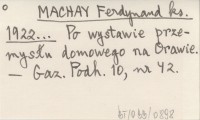 MACHAY Ferdynand ks.
1922... Po wystawie prze-
mysłu domowego na Orawie.
— Gaz. Podh. 10, nr 42.
bJ/Obb/0898